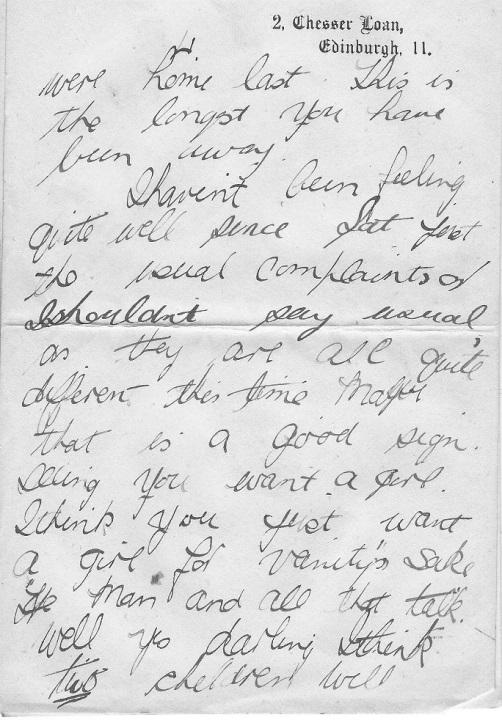 2, Chesser Loan,
Edinburgh, 11.
were home last. This is
the longest you have
been away.
I haven't been feeling
quite well since Sat just
the usual complaints or
I shouldn't say usual
as they are all quite
different this time Maybe
that is a good sign.
Seeing you want a girl.
I think you just want
a girl for vanity's sake
He Man and all that talk.
well yo darling I think
two children will